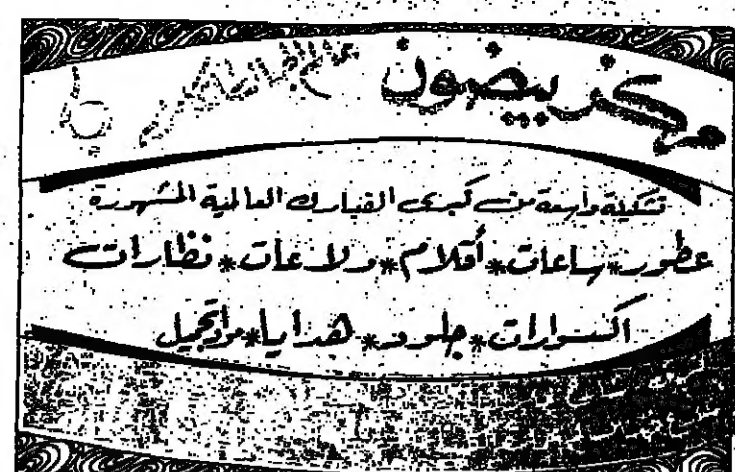 مركز بيضون
تشكيلة واسعة من كبرى الفبارك العالمية المشهورة
عطور * ساعات * أقلام * ولاعات * نظارات
اكسسوارات * جلود * هدايا * مواد تجميل